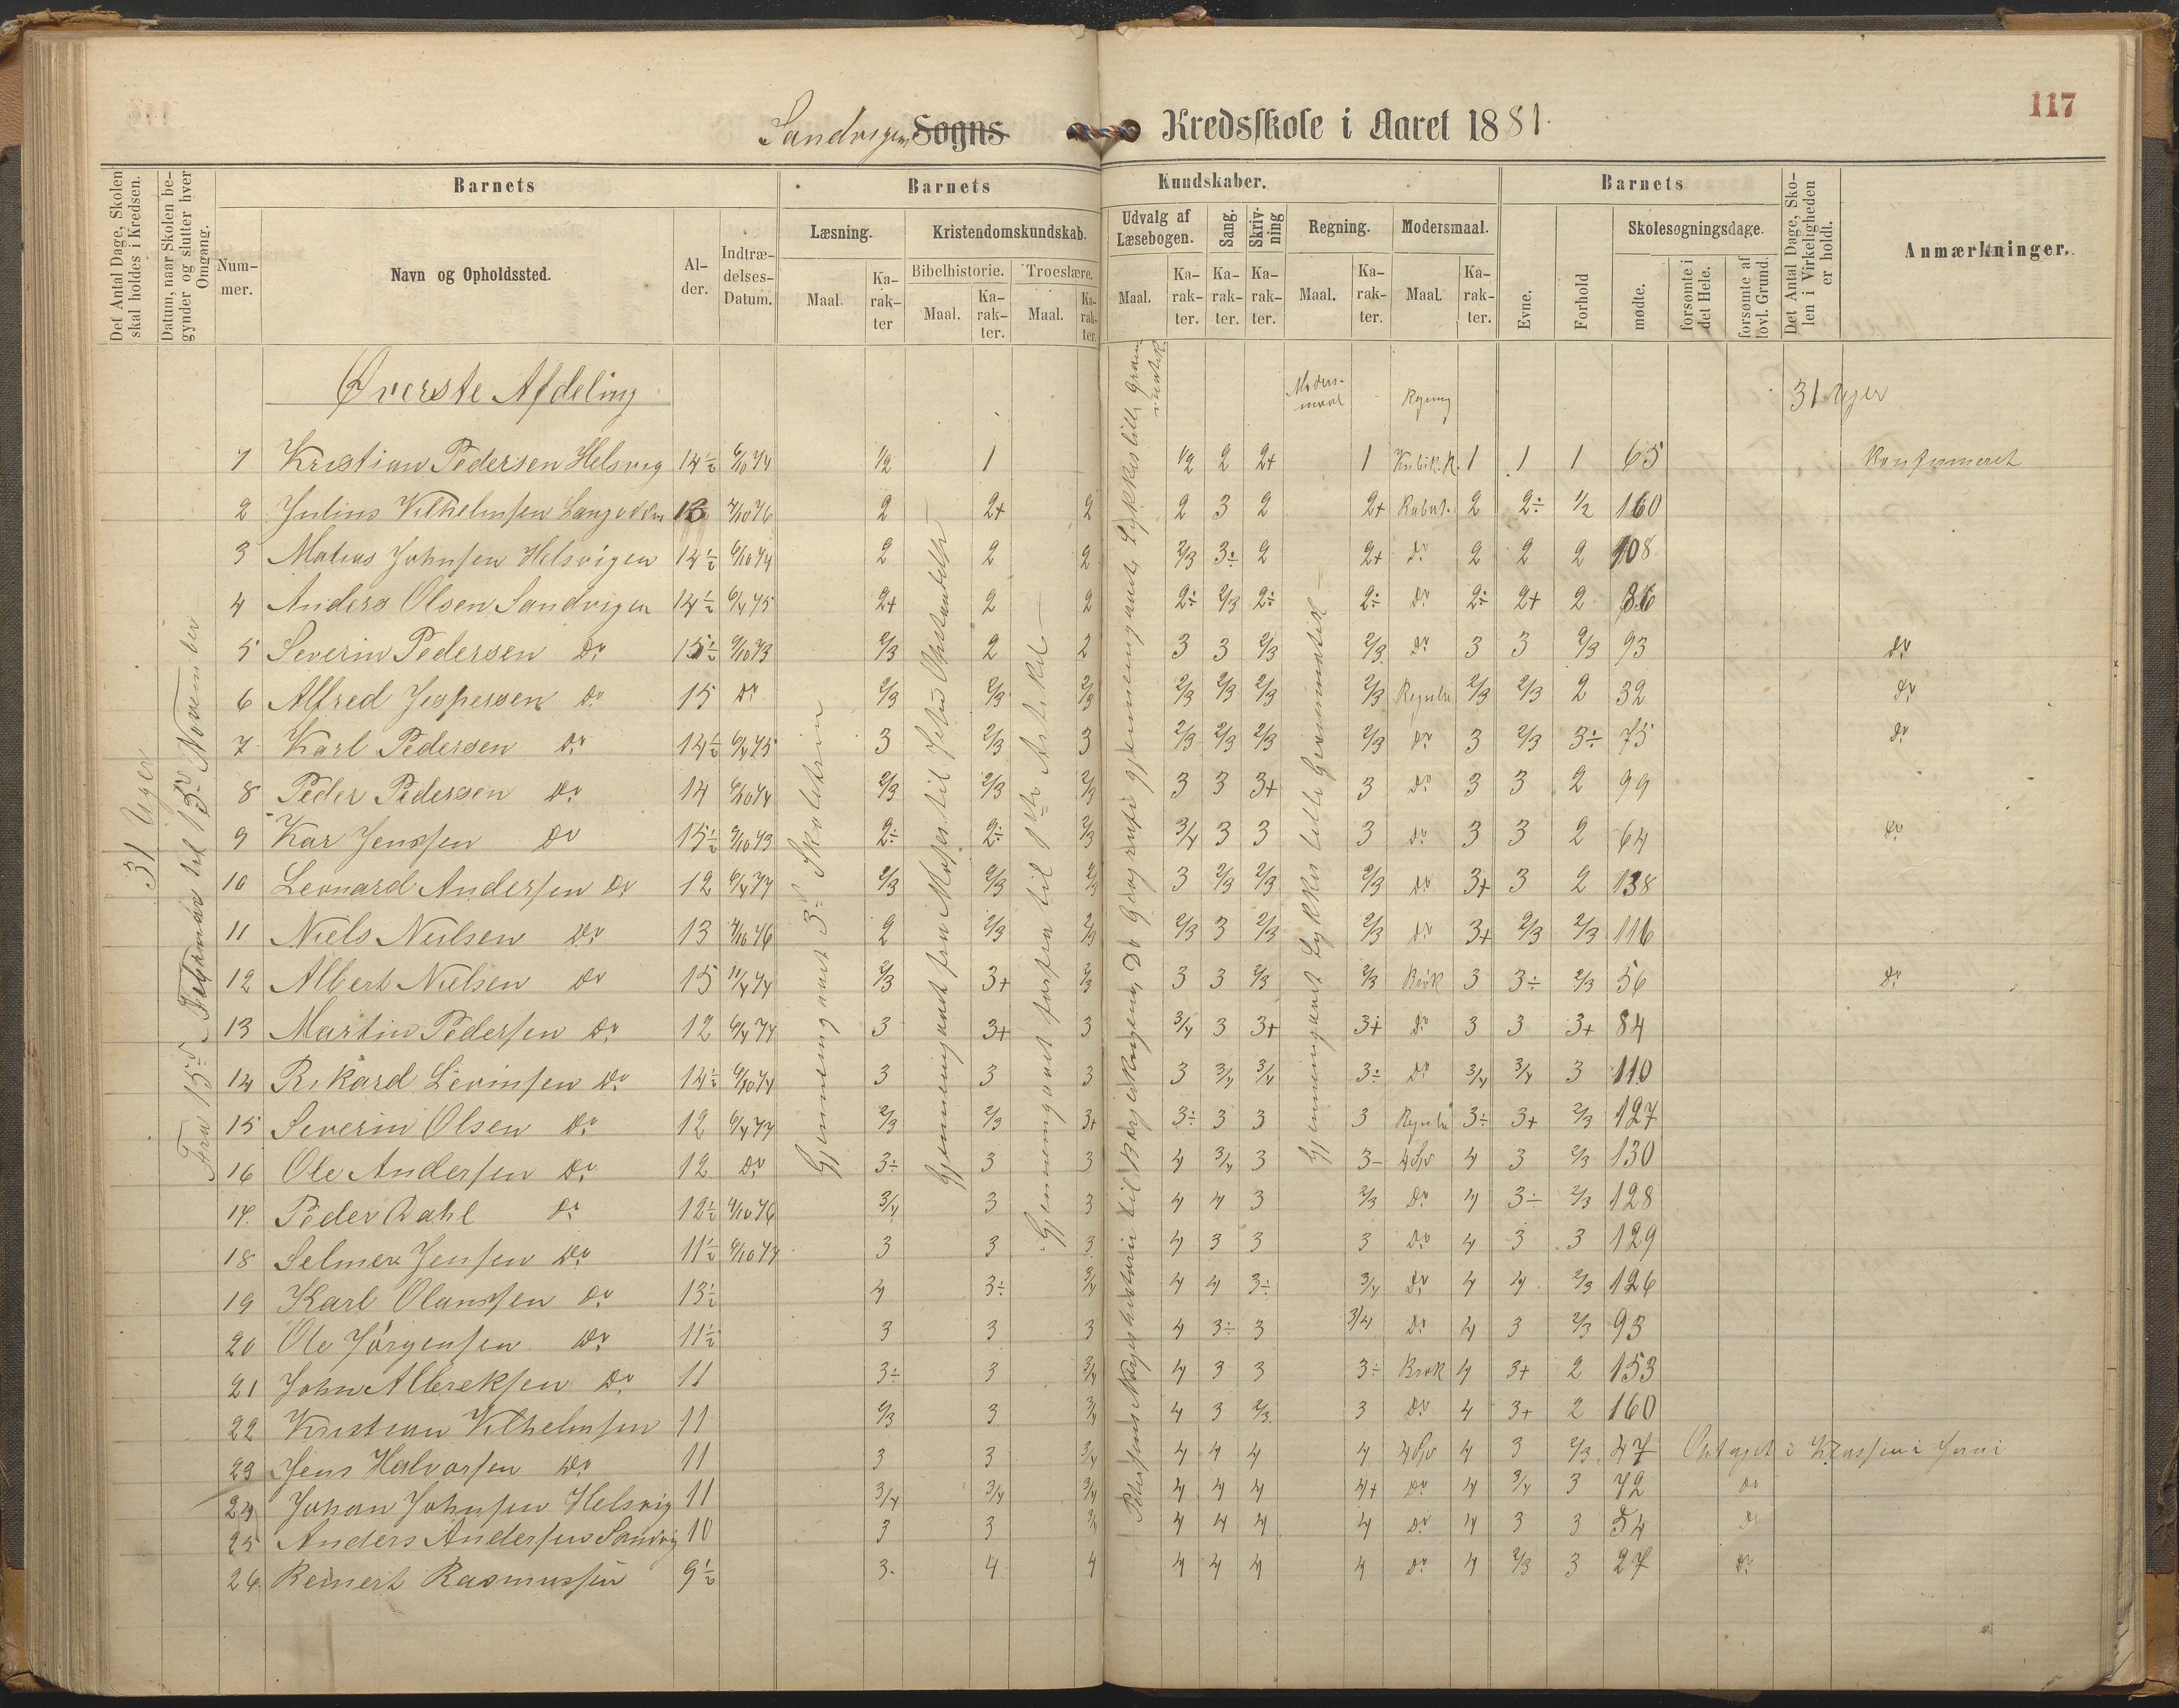 117
Sandvigen Sogns Kredsskole i Aaret 1881.
Det Antal Dage, Skolen skal holdes i Kredsen.
Datum, naar Skolen begynder og slutter hver Omgang.
Barnets
Nummer. Navn og Opholdssted. Alder. Indtrædelses-Datum.
Barnets Kundskaber.
Læsning. Kristendomskundskab. Udvalg af Læsebogen. Sang. Skrivning Regning. Modersmaal.
Bibelhistorie. Troeslære.
Maal. Karakter Maal. Karakter. Maal. Karakter. Maal. Karakter. Karakter. Karakter. Maal. Karakter. Maal. Karakter.
Barnets
Evne. Forhold Skolesøgningsdage.
mødte. forsømte i det Hele. forsømte af lovl. Grund.
Det Antal Dage, Skolen i Virkeligheden er holdt.
Anmærkninger.
31 Uger
Fra 15de Februar til 15de November
Gjennemgaaet 3die Skoletrin
Gjennemgaaet fra Moses til Jesu Opstandelse
Gjennemgaaet forfra til 1ste Artikel
Gjennemgaaet Lykkes lille Grammatik
Øverste Afdeling Modersmaal Regning 31 Uger
1 Kristian Pedersen Helsvig 14½ 6/10 74 1/2 1 1/2 2 2+ 1 Kubik.R. 1 1 1 65 Konfirmeret
2 Julius Vilhelmsen 13 4/10 76 2 2+ 2 2 3 2 2+ Rabat. 2 2÷ 1/2 160
3 Matias Johnsen Helsvigen 14½ 6/10 74 2 2 2 2/3 3÷ 2 2+ do 2 2 2 108
4 Anders Olsen Sandvigen 14½ 6/4 75 2+ 2 2 2÷ 2/3 2÷ 2÷ do 2÷ 2+ 2 86
5 Severin Pedersen do 15½ 9/10 73 2/3 2 2 3 3 2/3 2/3 do 3 3 2/3 93 do
6 Alfred Jespersen do 15 do 2/3 2/3 2/3 2/3 2/3 2/3 2/3 Regula 2/3 2/3 2 32 do
7 Karl Pedersen do 14½ 6/4 75 3 2/3 3 2/3 2/3 2/3 2/3 do 3 2/3 3÷ 75 do
8 Peder Pedersen do 14 6/10 74 2/3 2/3 2/3 3 3 3+ 3 do 3 3 2 99
9 Kar Jenssen do 15½ 9/10 73 2÷ 2÷ 2/3 3/4 3 3 3 do 3 3 2 64 do
10 Leonard Andersen do 12 6/4 77 2/3 2/3 2/3 3 2/3 2/3 2/3 do 3+ 3 2 138
11 Niels Nielsen do 13 4/10 76 2 2/3 2/3 2/3 3 2/3 2/3 do 3+ 2/3 2/3 116
12 Albert Nielsen do 15 11/4 74 2/3 3+ 2/3 3 3 2/3 2/3 Brök 3 3÷ 2/3 56 do
13 Martin Pedersen do 12 6/4 77 3 3+ 3 3/4 3 3+ 3+ do 3 3 3+ 84
14 Rikard Levinsen do 14½ 6/10 74 3 3 3 3 3/4 3/4 3÷ do 3/4 3/4 3 110
15 Severin Olsen do 12 6/4 77 2/3 2/3 3+ 3÷ 3 3 3 Regula 3÷ 3+ 2/3 127
16 Ole Andersen do 12 do 3÷ 3 3 4 3/4 3 3- 4 Sp 4 3 2/3 130
17. Peder Dahl do 12½ 4/10 76 3/4 3 3 4 4 3 2/3 do 4 3÷ 2/3 128
18 Selmer Jensen do 11½ 6/10 77 3 3 3 4 3 3 3 do 4 3 3 129
19 Karl Olanssen do 13½ 4 3÷ 3/4 4 4 3÷ 3/4 do 4 4 2/3 126
20 Ole Jörgensen do 11½ 3 3 3 4 3÷ 3 3/4 do 4 3 2/3 93
21 John Albreksen do 11 3÷ 3 3/4 4 3 3 3÷ Brøk 4 3+ 2 153
22 Kristian Vilhelmsen 11 2/3 3 3/4 4 3 2/3 3 do 4 3+ 2 160
23 Jens Halvorsen do 11 3 3 3/4 4 4 4 4 4 Sp 4 3 2/3 47 Optaget i Klassen i Juni
24 Johan Johnsen Helsvig 11 3/4 3/4 3/4 4 4 4 4+ do 4 3/4 3 72 do
25 Anders Andersen Sandvig 10 3 3 3/4 4 4 4 4 do 4 3 3 54 do
26. Reinert Rasmussen 9½ 3. 4 4 4 4 4 4 do 4 2/3 3 27 do